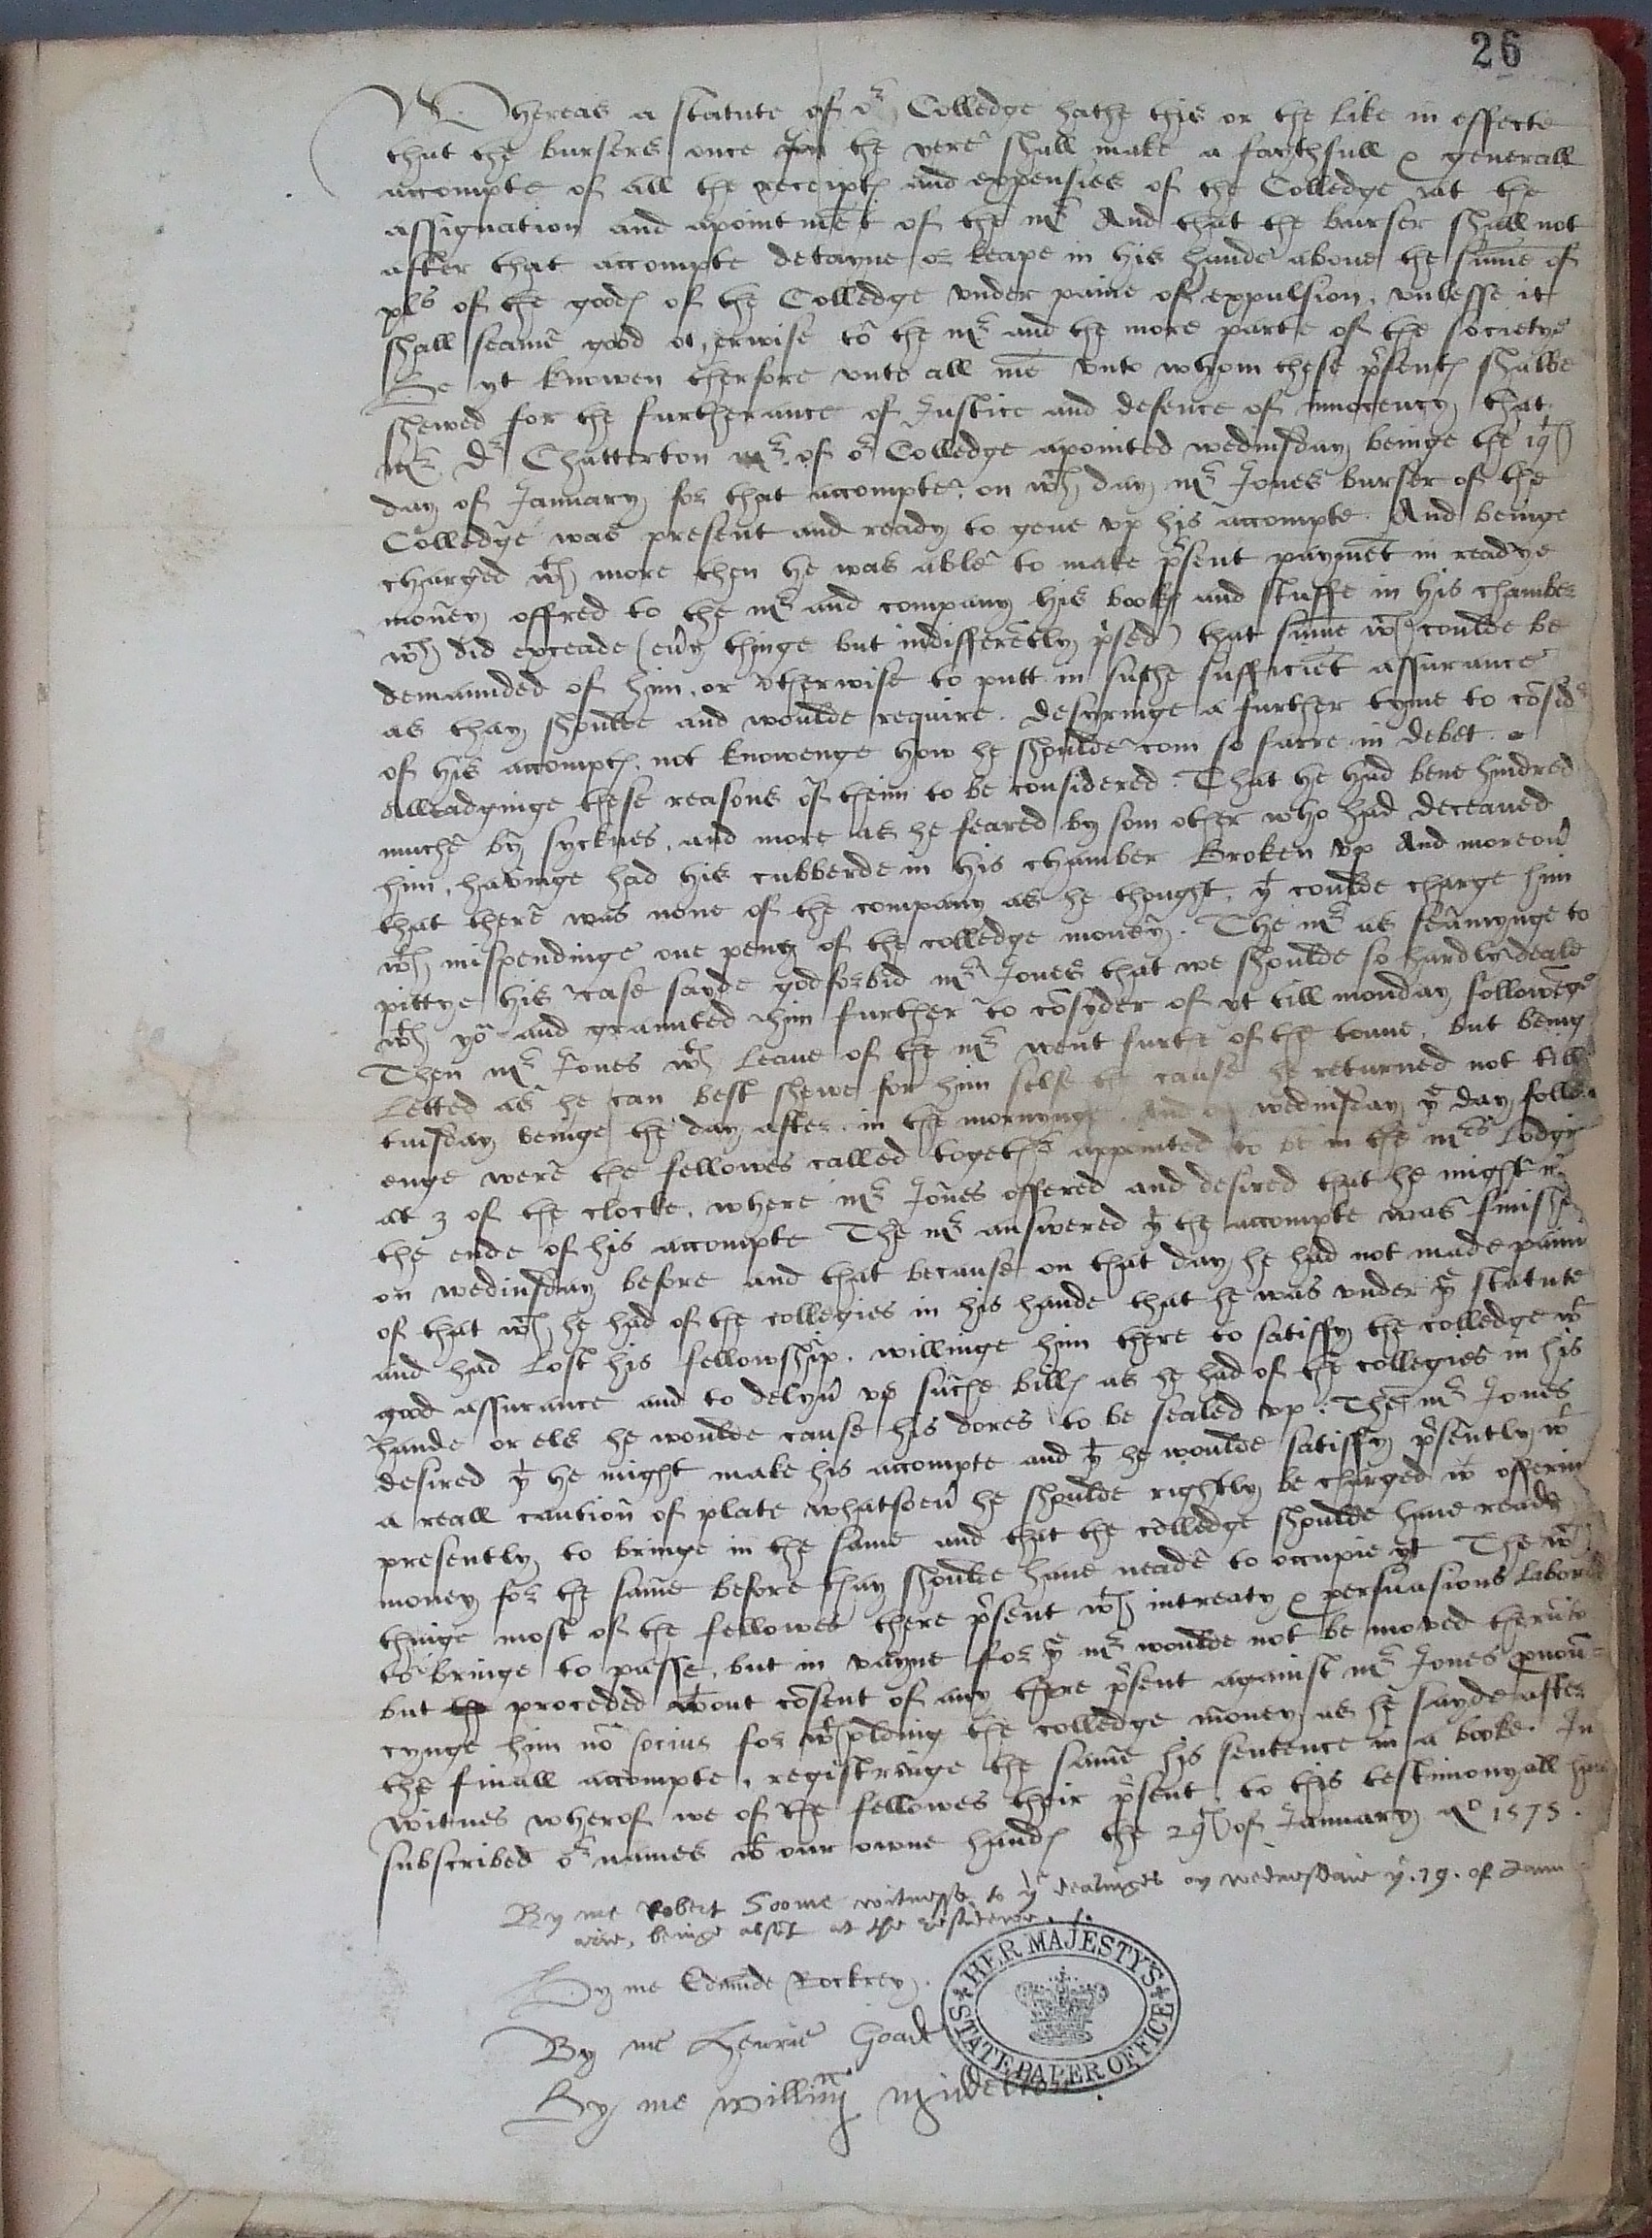 26
Whereas a statute of or Colledge hathe this or the like in effecte
that the bursers once in the yere shall make a faythfull & generall
accompte of all the receipts and expensies of the Colledge at the
assignation and apointmēt of the mr And that the burser shall not
after that accompte detayne or keape in his hande aboue the sūme of
xls of the goods of the Colledge vnder paine of expulsion, vnlesse it
shall seame good otherwise to the mr and the more parte of the societye
Be yt knowen therfore vnto all mē vnto whom these pſents shalbe
shewed for the furtherance of Justice and defence of innocency that
mr Dr Chatterton mr of or Colledge apointed wednisday beinge the 19
day of January for that accompte. on wch day mr Jones burser of the
Colledge was present and ready to geue vp his accompte. And beinge
charged wth more then he was able to make pſent paymēt in readye
money offred to the mr and company his books and stuffe in his chamber
wch did exceade (eūy thinge but indifferētly pſed) that sūme wch coulde be
demaunded of him, or otherwise to putt in suche sufficiēt assurance
as thay shoulde and woulde require. desyringe a further tyme to cōsider
of his accompts, not knowenge how he shoulde com so farre in debet.
alleadginge these reasons of theim to be considered. That he had bene hindred
muche by sycknes, and more as he feared by som other who had deceaued
him, havinge had his cubberde in his chamber Broken vp And moreoū
that there was none of the company as he thought, yt coulde charge him
wth mispendinge one peny of the colledge money. The mr as seamynge to
pittye his case sayde god forbid mr Jones that we shoulde so hardly deale
wth yō and graunted him further to cōsyder of yt till monday followēge
Then mr Jones wth leaue of the mr went furth of the toune, but being
Letted as he can best shewe for him selfe the cause he returned not till
tuisday beinge the day after in the mornynge. And on wednisday ye day follo
enge were the fellowes called together appointed to be in the mrs Lodgi
at 3 of the clocke, where mr Jones offered and desired that he might
the ende of his accompte The mr answered yt the accompte was finishe
on wednisday before and that because on that day he had not made paim
of that wch he had of the collegies in his hande that he was vnder ye statute
and had lost his fellowship. willinge him there to satisfy the colledge wt
good assurance and to delyū vp suche bills as he had of the collegies in his
hande or els he woulde cause his dores to be sealed vp. The mr Jones
desired yt he might make his accompte and yt he woulde satisfy pſently wt
a reall caution of plate whatsoeū he shoulde rightly be charged wt offerin
presently to bringe in the same and that the colledge shoulde haue ready
money for the same before thay shoulde haue neade to occupie yt The wch
thinge most of the fellowes there pſent wth intreaty & persuasions labored
to bringe to passe, but in vayne for ye mr woulde not be moved therūto
but he proceded wtout cōsent of any there pſent against mr Jones pnoūn=
cynge him nō socius for wtholding the colledge money as he sayde after
the finall accompte, registringe the same his sentence in a booke. In
witnes wherof we of the fellowes their pſent, to this testimonyall haue
subscribed or names wt our owne hands the 29th of January Ao 1575.
By me Robert Soome witnesse to ye dealinges on wednesdaie ye .19. of Janu
arie, beinge absēt at the residewe.
By me Edmūde Rockrey.
By me Henrie Goade
By me Willim Midelton.
HER MAJESTY'S
STATE PAPER OFFICE